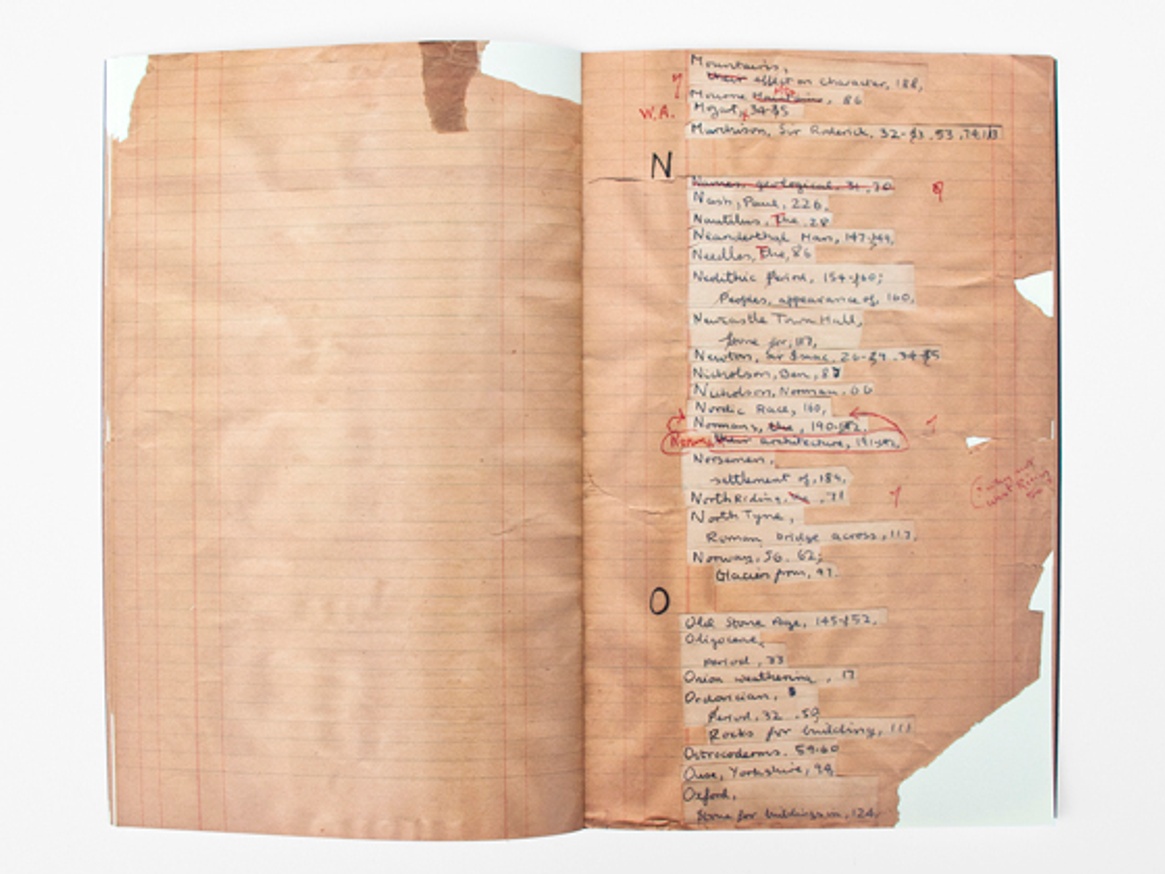 Mountains,
their effect on character, 188,
Mourne Mountains, Mts 86
W.A. Mozart, 34-35
Murchison, Sir Roderick, 32-33, 53,
N
Names, geological, 31, 70
Nash, Paul, 226,
Nautilus, The, 28
Neanderthal Man, 147-149,
Needles, The, 86
Neolithic period, 154-160;
Peoples, appearance of, 160,
Newcastle Town Hall,
stone for, 117,
Newton, Sir Isaac, 26-29, 34-35
Nicholson, Ben, 87
Nicholson, Norman, 66
Nordic Race, 160,
Normans, the, 190-192,
their architecture, 191-192,
Norsemen,
settlement of, 184,
North Riding, the, 71
North Tyne,
Roman bridge across, 117,
Norway, 56, 62;
Glaciers from, 97.
O
Old Stone Age, 145-152,
Oligocene,
period, 33
Onion weathering, 17
Ordovician,
Period, 32, 59
Rocks for building, 111
Ostracoderms, 59-60
Ouse, Yorkshire, 98,
Oxford,
Stone for buildings in, 124,